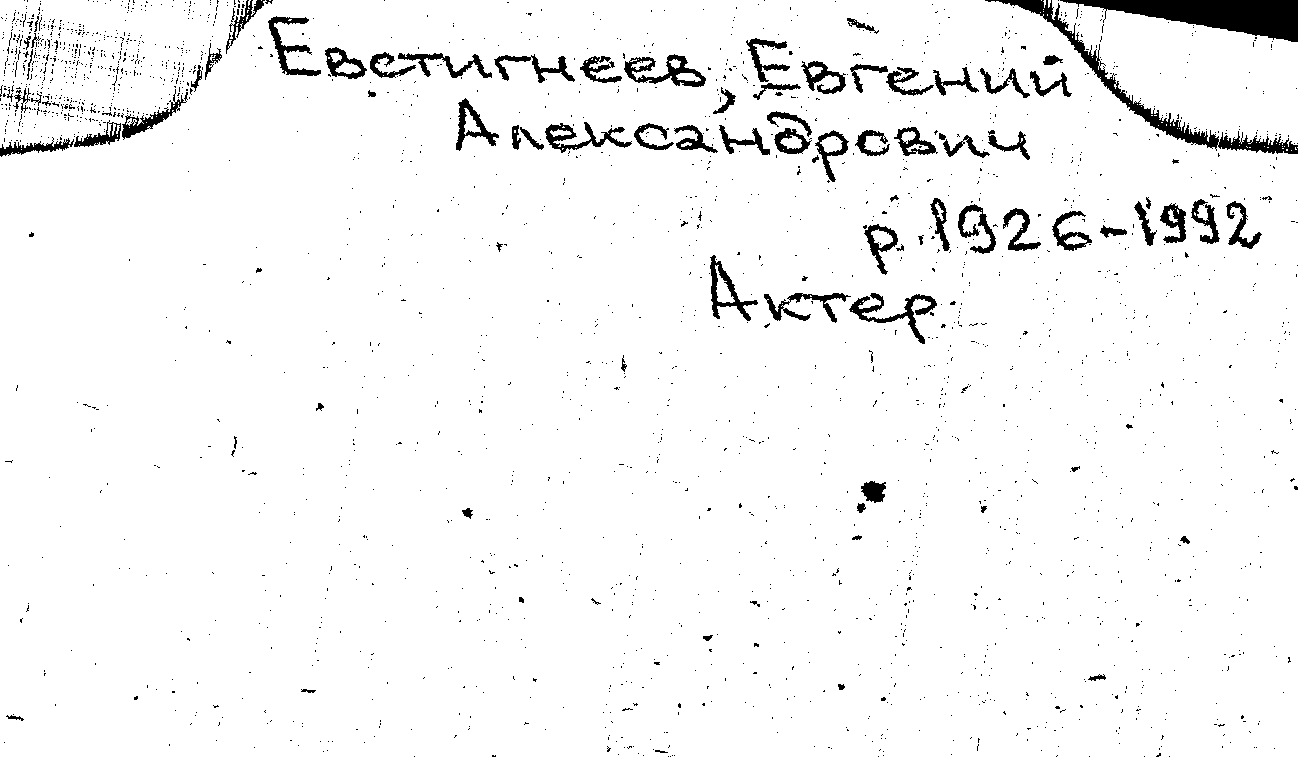 Евстигнеев, Евгений
Александрович
р. 1926-1992
Актер